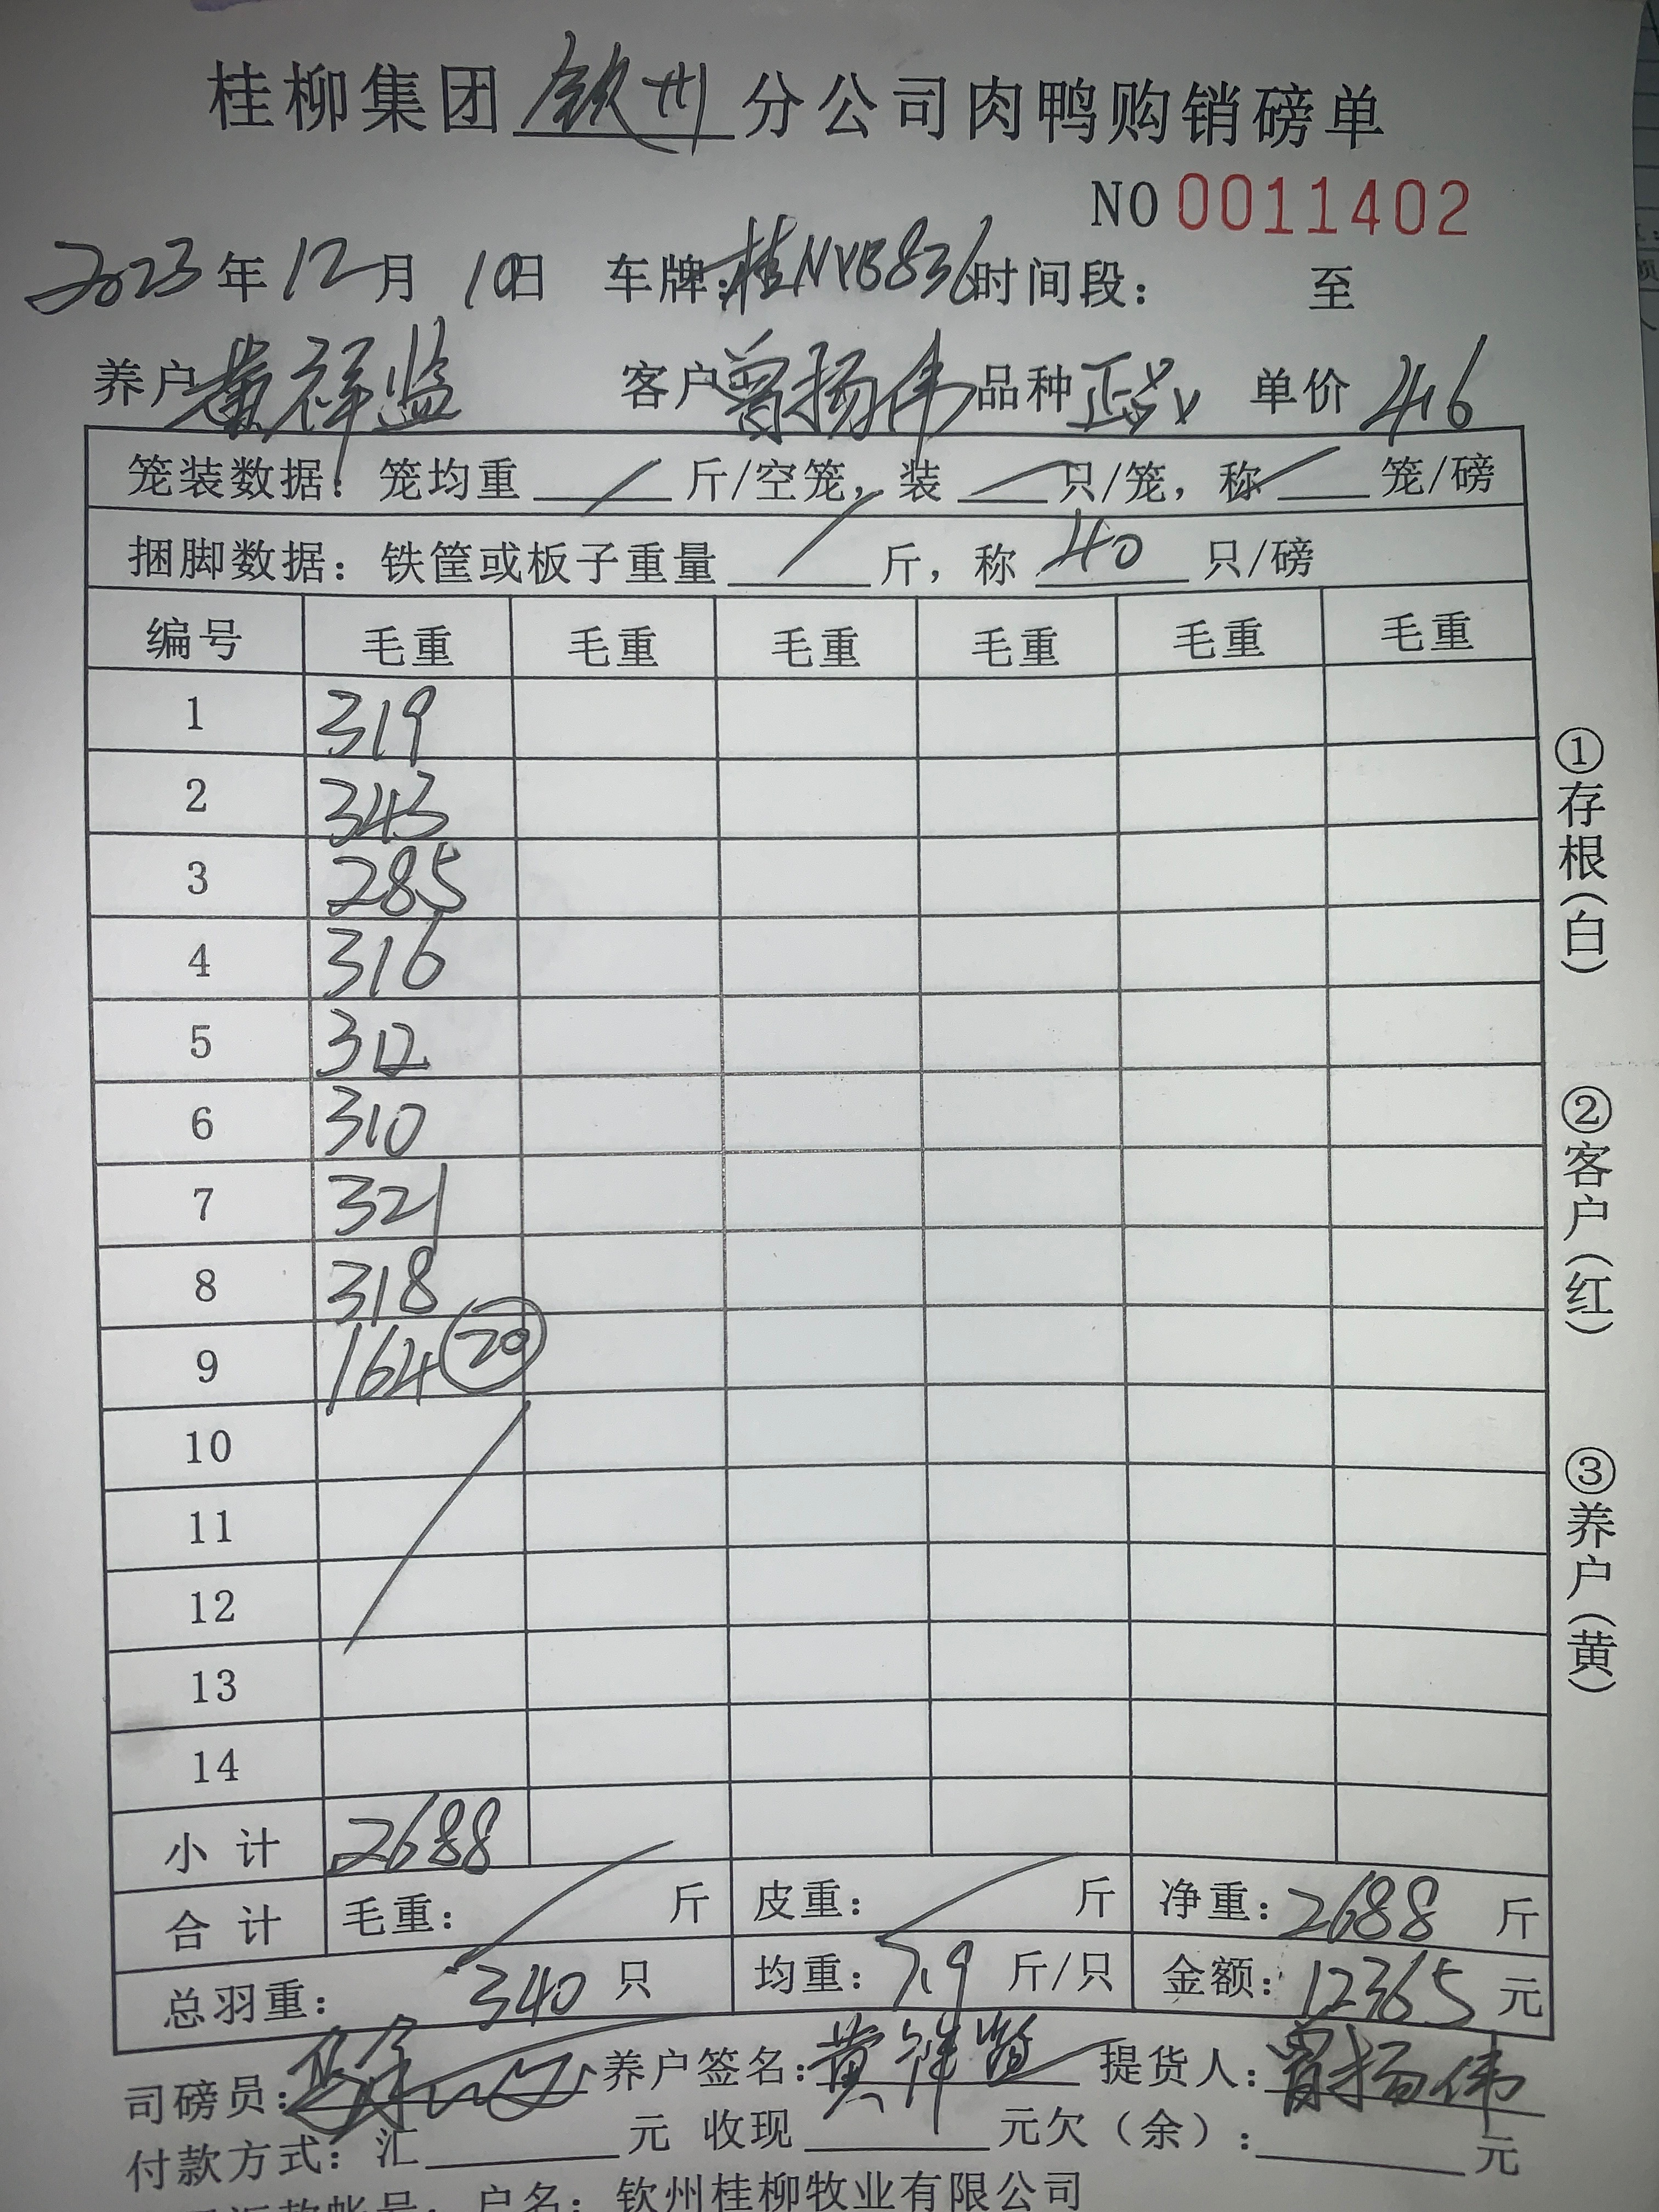 桂柳集团 钦州 分公司肉鸭购销磅单
NO 0011402
2023年12月10日 车牌:桂NYB836 时间段: 至
养户 黄祥监 客户 曾扬伟 品种 单价 4.6
笼装数据: 笼均重 / 斤/空笼, 装 / 只/笼, 称 / 笼/磅
捆脚数据: 铁筐或板子重量 / 斤, 称 40 只/磅
编号 毛重 毛重 毛重 毛重 毛重 毛重
1 319
2 343
3 285
4 316
5 312
6 310
7 321
8 318
9 164 ⑳
10
11
12
13
14
小计 2688
合计 毛重: 斤 皮重: 斤 净重: 2688 斤
总羽重: 340 只 均重: 7.9 斤/只 金额: 12365 元
司磅员: 养户签名: 黄祥监 提货人: 曾扬伟
付款方式: 汇 元 收现 元欠(余): 元
户名: 钦州桂柳牧业有限公司
①存根(白)
②客户(红)
③养户(黄)